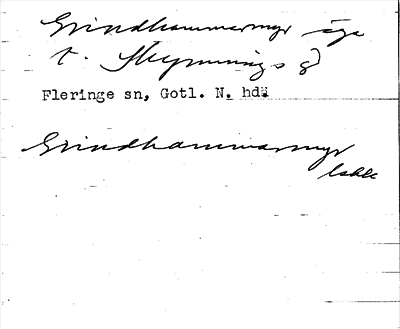 Grindhammarmyr äga
t. Skymnings gd
Fleringe sn, Gotl. N. hdä.
Grindhammarsmyr